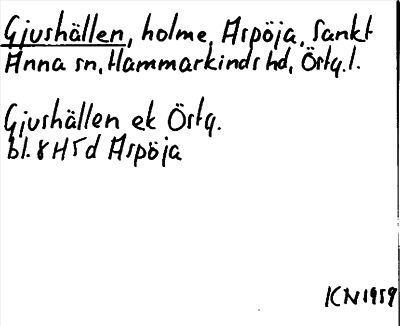 Gjushällen, holme, Aspöja, Sankt
Anna sn, Hammarkinds hd, Östg.l.
Gjushällen ek Östg.
bl. 8 H 5 d Aspöja
KN 1959